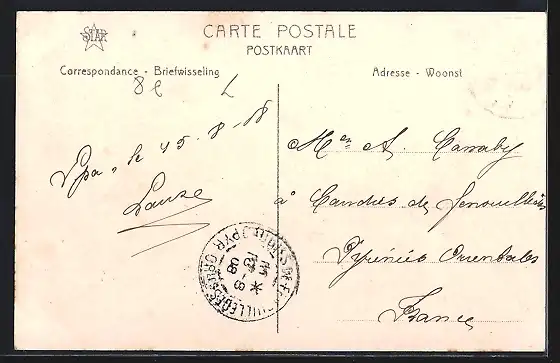 STAR
CARTE POSTALE
POSTKAART
Correspondance - Briefwisseling
Adresse - Woonst
Spa, le 15-8-08
Mr A. Carraby
à Caudiès de Fenouillèdes
Pyrénées Orientales
France